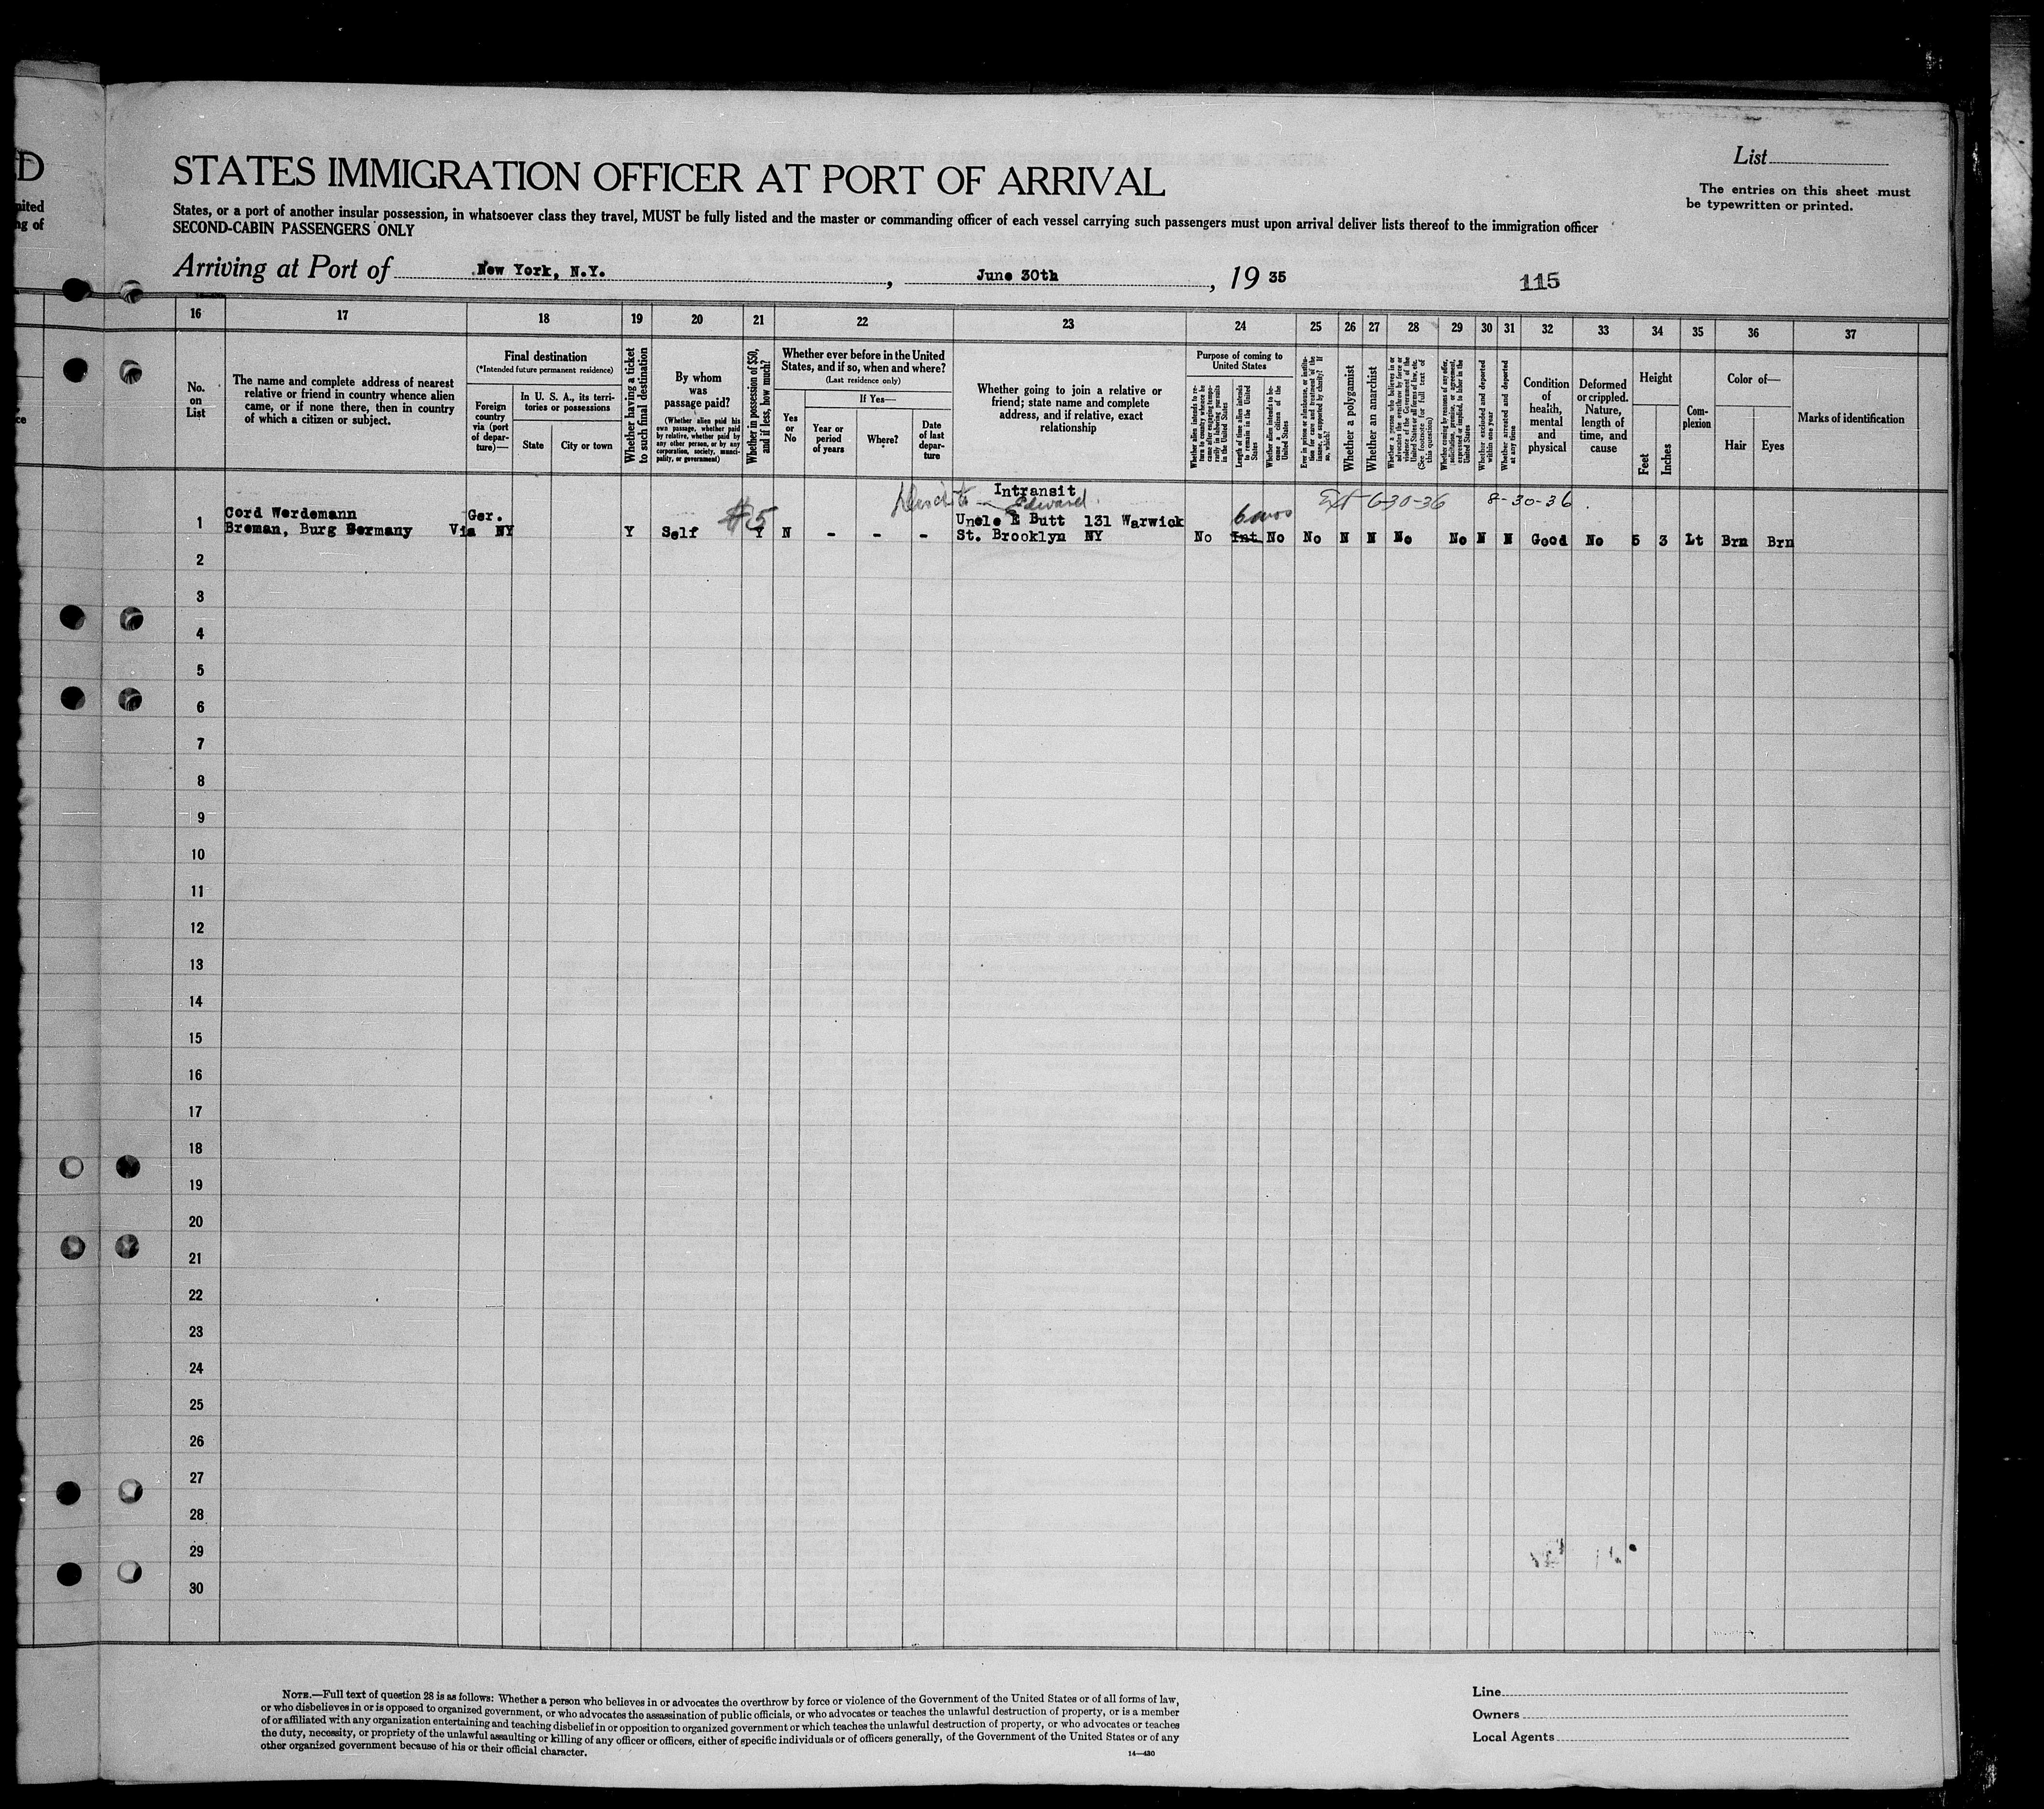 D
nited
ng of
ce
List
The entries on this sheet must
be typewritten or printed.
STATES IMMIGRATION OFFICER AT PORT OF ARRIVAL
States, or a port of another insular possession, in whatsoever class they travel, MUST be fully listed and the master or commanding officer of each vessel carrying such passengers must upon arrival deliver lists thereof to the immigration officer
SECOND-CABIN PASSENGERS ONLY
Arriving at Port of New York, N.Y. , June 30th , 19 35
115
16 17 18 19 20 21 22 23 24 25 26 27 28 29 30 31 32 33 34 35 36 37
No.
on
List
The name and complete address of nearest
relative or friend in country whence alien
came, or if none there, then in country
of which a citizen or subject.
Final destination
(*Intended future permanent residence)
Foreign
country
via (port
of depar-
ture)—
In U. S. A., its terri-
tories or possessions
State
City or town
Whether having a ticket
to such final destination
By whom
was
passage paid?
(Whether alien paid his
own passage, whether paid
by relative, whether paid by
any other person, or by any
corporation, society, munici-
pality, or government)
Whether in possession of $50,
and if less, how much?
Whether ever before in the United
States, and if so, when and where?
(Last residence only)
Yes
or
No
If Yes—
Year or
period
of years
Where?
Date
of last
depar-
ture
Whether going to join a relative or
friend; state name and complete
address, and if relative, exact
relationship
Purpose of coming to
United States
Whether alien intends to re-
turn to country whence he
came after engaging tempo-
rarily in laboring pursuits
in the United States
Length of time alien intends
to remain in the United
States
Whether alien intends to be-
come a citizen of the
United States
Ever in prison or almshouse, or institu-
tion for care and treatment of the
insane, or supported by charity? If
so, which?
Whether a polygamist
Whether an anarchist
Whether a person who believes in or
advocates the overthrow by force or
violence of the Government of the
United States or all forms of law, etc.
(See footnote for full text of
this question)
Whether coming by reason of any offer,
solicitation, promise, or agreement,
expressed or implied, to labor in the
United States
Whether excluded and deported
within one year
Whether arrested and deported
at any time
Condition
of
health,
mental
and
physical
Deformed
or crippled.
Nature,
length of
time, and
cause
Height
Feet
Inches
Com-
plexion
Color of—
Hair
Eyes
Marks of identification
Intransit
Edward
Ext 6-30-36 8-30-36
Cord Werdemann Ger. $5 Uncle E Butt 131 Warwick 6 mos
1 Breman, Burg Germany Via NY Y Self Y N - - - St. Brooklyn NY No Int No No N N No No N N Good No 5 3 Lt Brn Brn
2
3
4
5
6
7
8
9
10
11
12
13
14
15
16
17
18
19
20
21
22
23
24
25
26
27
28
29
30
NOTE.—Full text of question 28 is as follows: Whether a person who believes in or advocates the overthrow by force or violence of the Government of the United States or of all forms of law,
or who disbelieves in or is opposed to organized government, or who advocates the assassination of public officials, or who advocates or teaches the unlawful destruction of property, or is a member
of or affiliated with any organization entertaining and teaching disbelief in or opposition to organized government or which teaches the unlawful destruction of property, or who advocates or teaches
the duty, necessity, or propriety of the unlawful assaulting or killing of any officer or officers, either of specific individuals or of officers generally, of the Government of the United States or of any
other organized government because of his or their official character.
14—430
Line
Owners
Local Agents